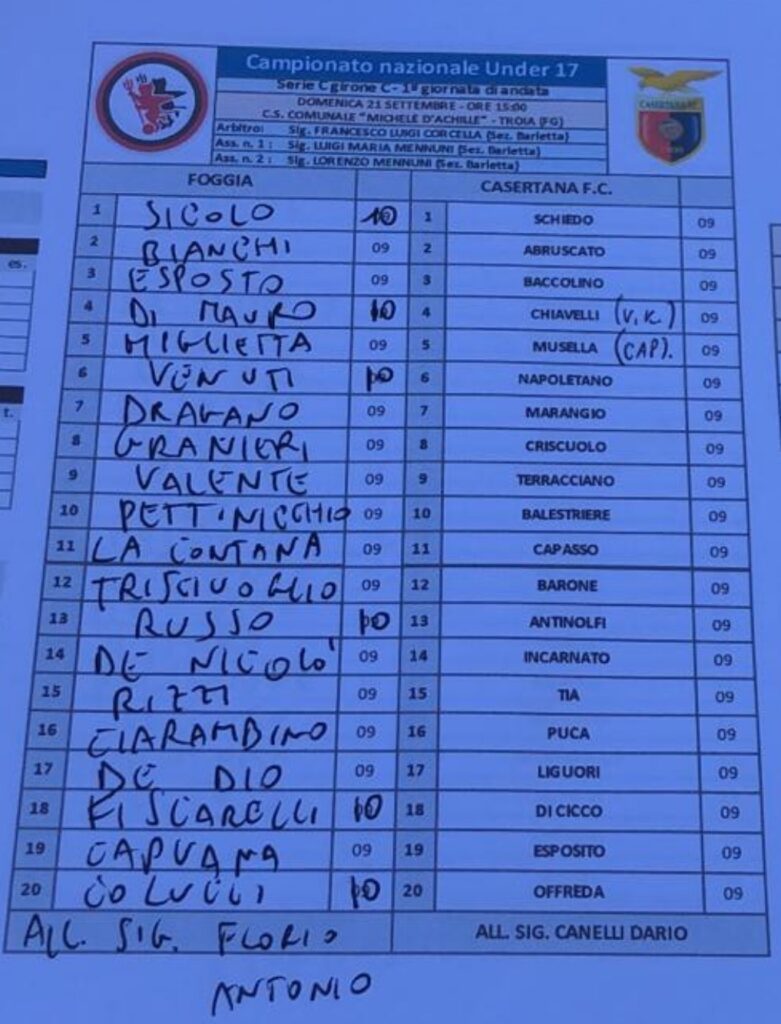 Campionato nazionale Under 17
Serie C girone C - 1ª giornata di andata
DOMENICA 21 SETTEMBRE - ORE 15:00
C.S. COMUNALE "MICHELE D'ACHILLE" - TROIA (FG)
Arbitro: Sig. FRANCESCO LUIGI CORCELLA (Sez. Barletta)
Ass. n. 1 : Sig. LUIGI MARIA MENNUNI (Sez. Barletta)
Ass. n. 2 : Sig. LORENZO MENNUNI (Sez. Barletta)
CASERTANA FC
FOGGIA CASERTANA F.C.
1 SICOLO 10 1 SCHIEDO 09
2 BIANCHI 09 2 ABRUSCATO 09
3 ESPOSTO 09 3 BACCOLINO 09
4 DI MAURO 10 4 CHIAVELLI (V.K.) 09
5 MIGLIETTA 09 5 MUSELLA (CAP). 09
6 VENUTI 10 6 NAPOLETANO 09
7 DRAGANO 09 7 MARANGIO 09
8 GRANIERI 09 8 CRISCUOLO 09
9 VALENTE 09 9 TERRACCIANO 09
10 PETTINICCHIO 09 10 BALESTRIERE 09
11 LA CONTANA 09 11 CAPASSO 09
12 TRISCIUOGLIO 09 12 BARONE 09
13 RUSSO 10 13 ANTINOLFI 09
14 DE NICOLO' 09 14 INCARNATO 09
15 RIZZI 09 15 TIA 09
16 CIARAMBINO 09 16 PUCA 09
17 DE DIO 09 17 LIGUORI 09
18 FISCARELLI 10 18 DI CICCO 09
19 CAPUANA 09 19 ESPOSITO 09
20 COLUCCI 10 20 OFFREDA 09
ALL. SIG. FLORIO ALL. SIG. CANELLI DARIO
ANTONIO
es.
t.